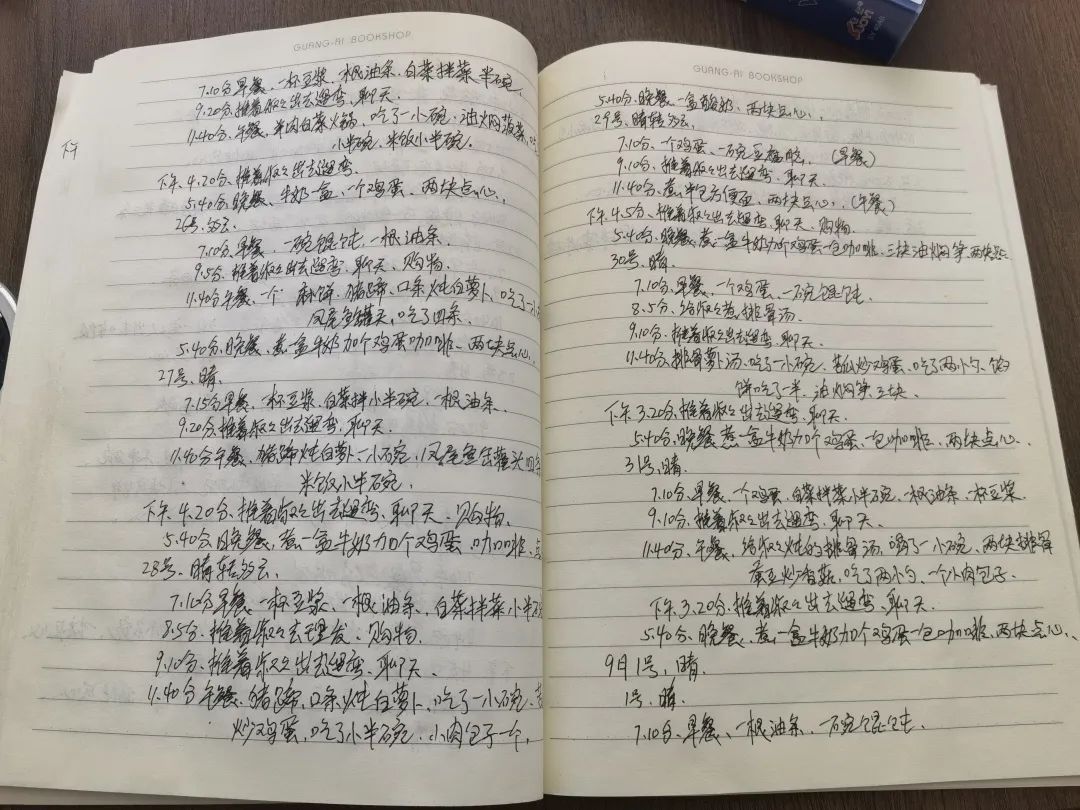 GUANG-RI BOOKSHOP
7.10分早餐、一杯豆浆、一根油条、白菜拌菜、半碗、
9.20分、推着叔叔出去遛弯、聊天、
11.40分、午餐、羊肉白菜火锅、吃了一小碗、油焖菠菜、
小半碗、米饭小半碗、
下午
下午4.20分、推着叔叔出去遛弯、
5.40分、晚餐、牛奶一盒、一个鸡蛋、两块点心、
26号、多云、
7.10分早餐、一碗馄饨、一根油条、
9.5分、推着叔叔出去遛弯、聊天、购物、
11.40分午餐、一个麻饼、猪蹄、口条炖白萝卜、吃了一小
凤尾鱼罐头、吃了四条、
5.40分、晚餐、煮一盒牛奶加个鸡蛋咖啡、两块点心、
27号、晴、
7.15分早餐、一杯豆浆、白菜拌小半碗、一根油条、
9.20分、推着叔叔出去遛弯、聊天、
11.40分午餐、猪蹄炖白萝卜一小碗、凤尾鱼罐头四条
米饭小半碗、
下午4.20分、推着叔叔出去遛弯、聊天、购物、
5.40分、晚餐、煮一盒牛奶加个鸡蛋、咖啡、
28号、晴转多云、
7.10分早餐、一杯豆浆、一根油条、白菜拌菜小半
8.5分、推着叔叔去理发、购物、
9.10分、推着叔叔出去遛弯、聊天、
11.40分午餐、猪蹄、口条炖白萝卜、吃了一小碗、
炒鸡蛋、吃了小半碗、小肉包子一个、
GUANG-RI BOOKSHOP
5.40分、晚餐、一盒酸奶、两块点心、
29号、晴转多云、
7.10分、一个鸡蛋、一碗豆腐脑、(早餐)
9.10分、推着叔叔出去遛弯、聊天、
11.40分、煮半包方便面、两块点心、(午餐)
下午4.5分、推着叔叔出去遛弯、聊天、购物、
5.40分、晚餐、煮一盒牛奶加个鸡蛋一包咖啡、三块油焖笋、两块点
30号、晴、
7.10分、早餐、一个鸡蛋、一碗馄饨、
8.5分、给叔叔煮排骨汤、
9.10分、推着叔叔出去遛弯、聊天、
11.40分、排骨萝卜汤、吃了一小碗、苦瓜炒鸡蛋、吃了两小勺、馅
饼吃了一半、油焖笋三块、
下午3.20分、推着叔叔出去遛弯、聊天、
5.40分、晚餐、煮一盒牛奶加个鸡蛋、一包咖啡、两块点心、
31号、晴、
7.10分、早餐、一个鸡蛋、白菜拌菜小半碗、一根油条、一杯豆浆、
9.10分、推着叔叔出去遛弯、聊天、
11.40分、午餐、给叔叔炖的排骨汤、喝了一小碗、两块排骨
蚕豆炒香菇、吃了两小勺、一个小肉包子、
下午3.20分、推着叔叔出去遛弯、聊天、
5.40分、晚餐、煮一盒牛奶加个鸡蛋一包咖啡、两块点心、
9月1号、晴、
1号、晴、
7.10分、早餐、一根油条、一碗馄饨、